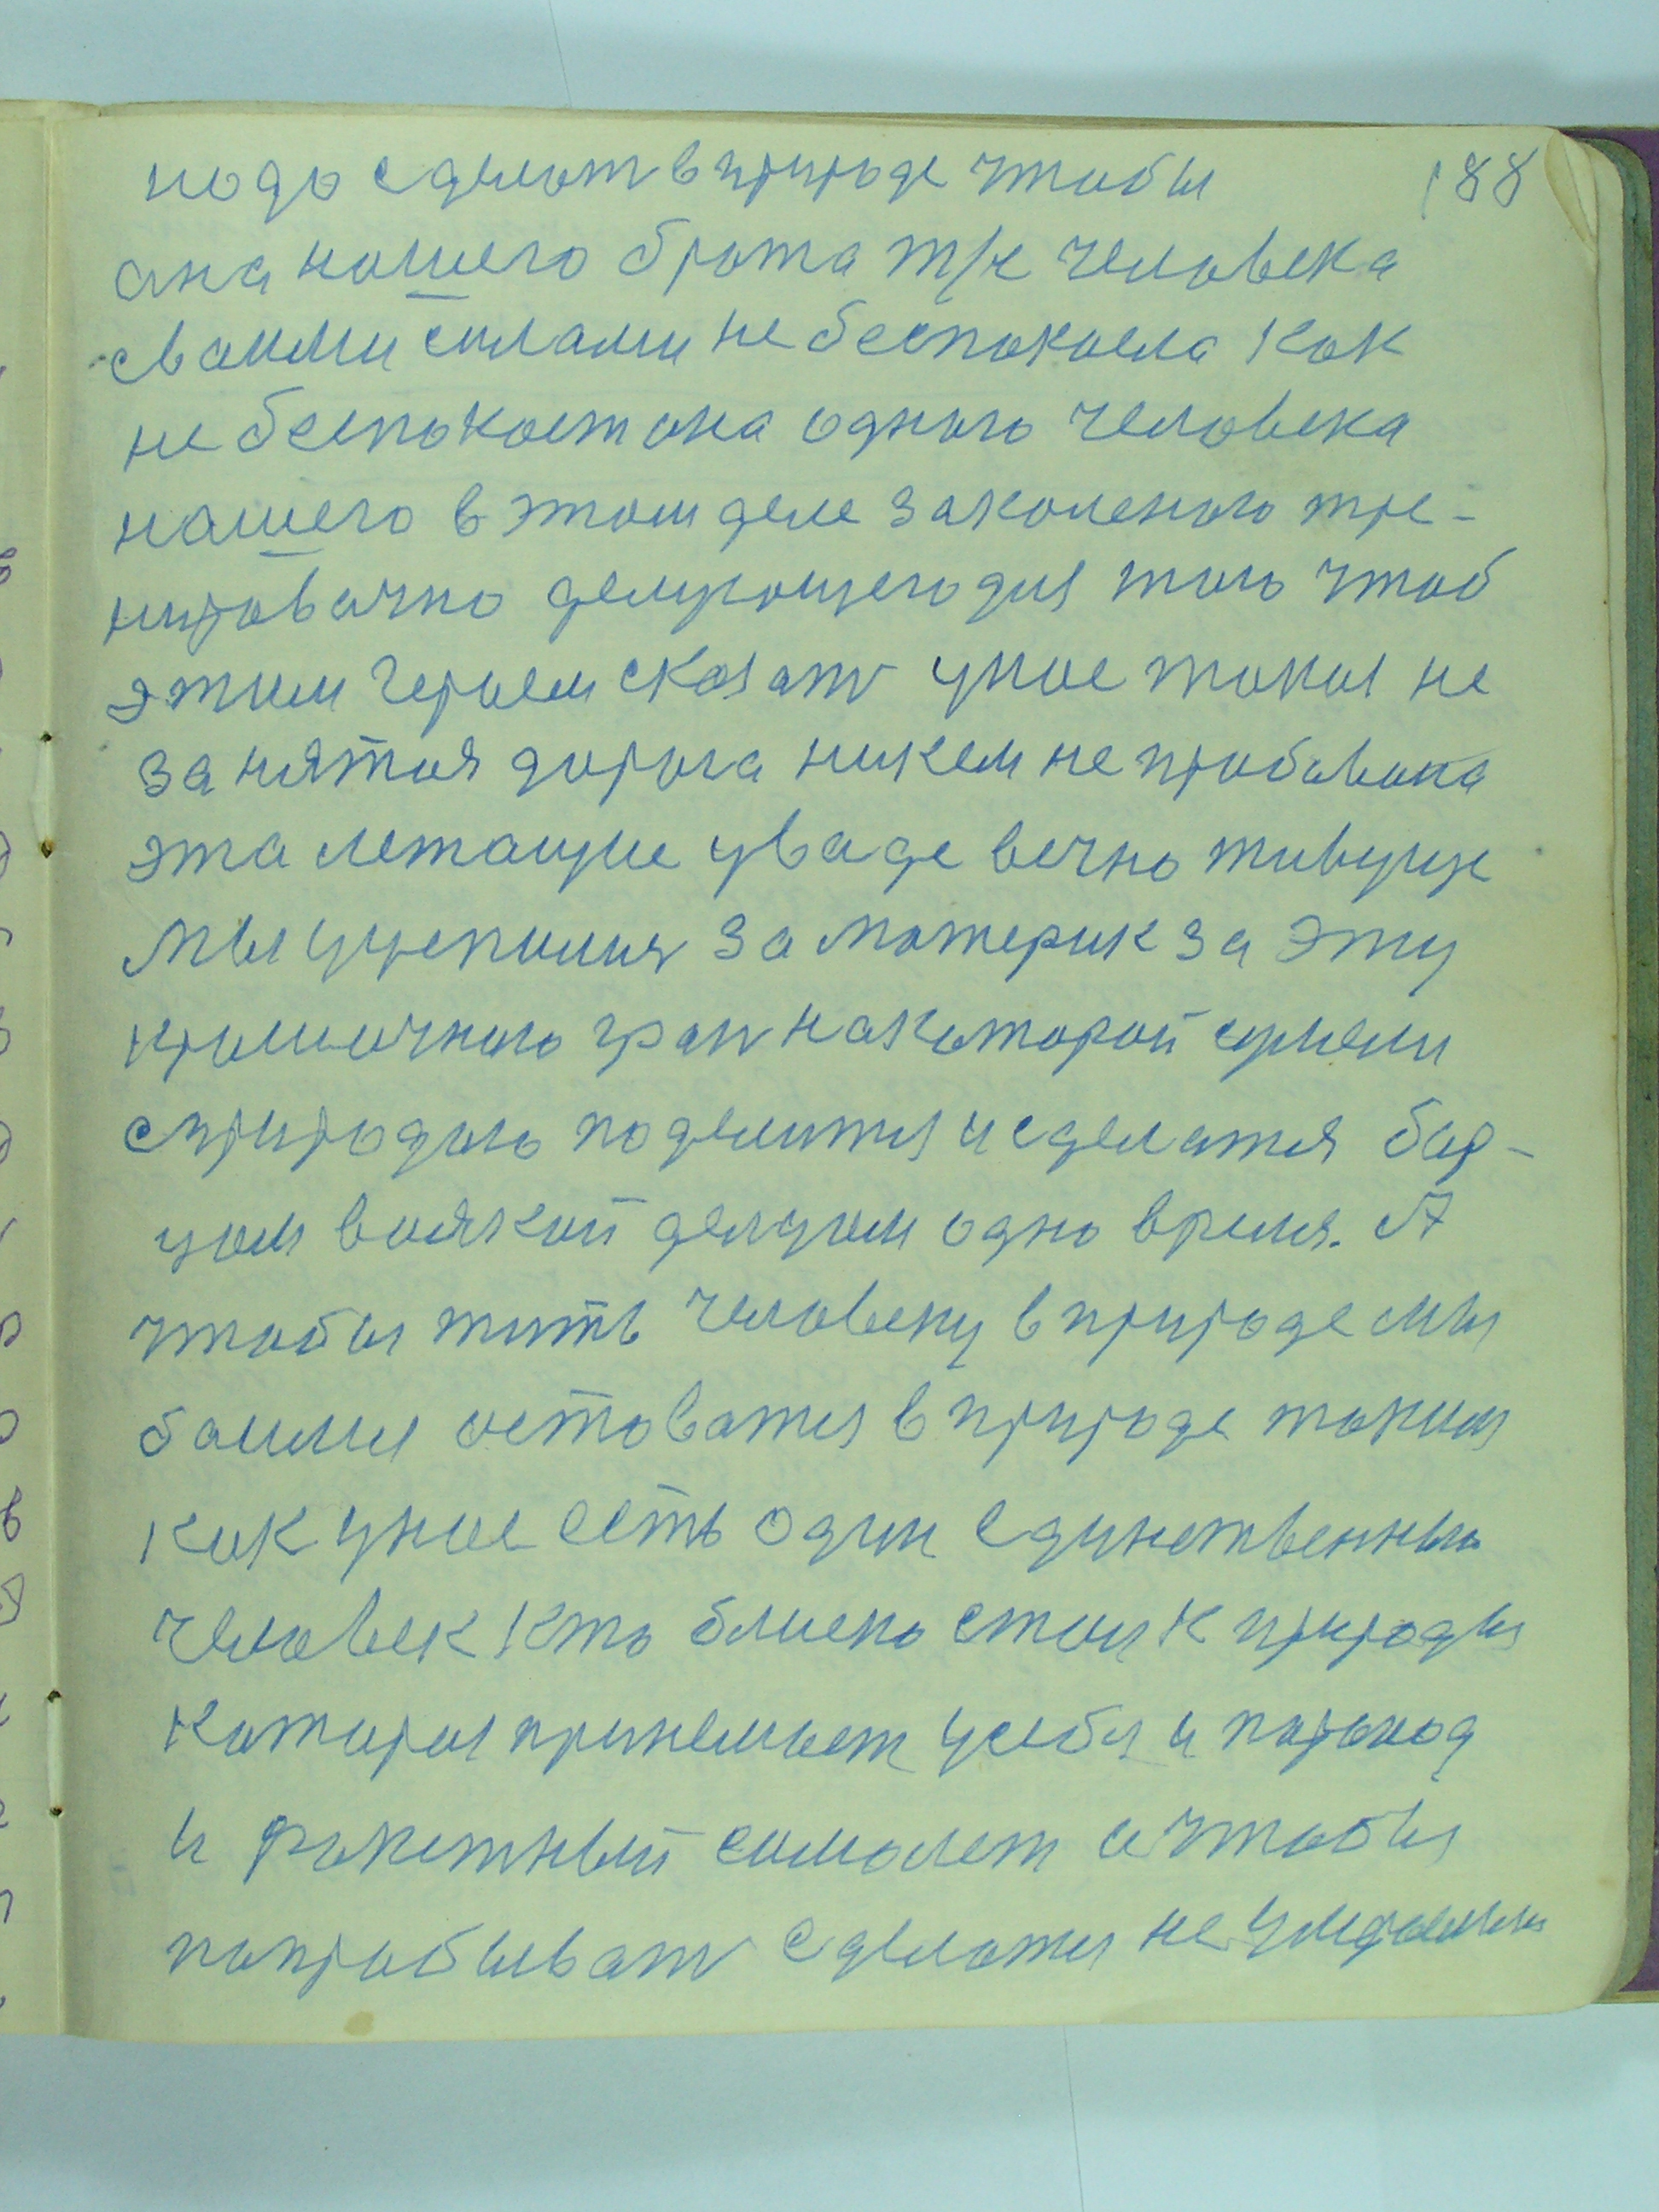 надо сделат в природе чтобы 188
ана нашего брата т/е человека
сваими силами не беспокоела как
не беспокоет она одного человека
нашего в этом деле закаленого тре-
нировачно делующего для того чтоб
этим героем сказат унас такая не
занятоя дорога никем не пробавана
эта летающие уваде вечно живущие
мы уцепилис за материк за эту
на которой сумели
сприродаю поделится и сделатся бор-
цом воякой делцом одно время. А
чтобы жить человеку в природе мы
баимся оставатся в природе таким
как унас есть один единственны
человек кто близко стал к природы
каторая принемает усебя и параход
и ракетный самолет а чтобы
попробыват сделатся не умераемым